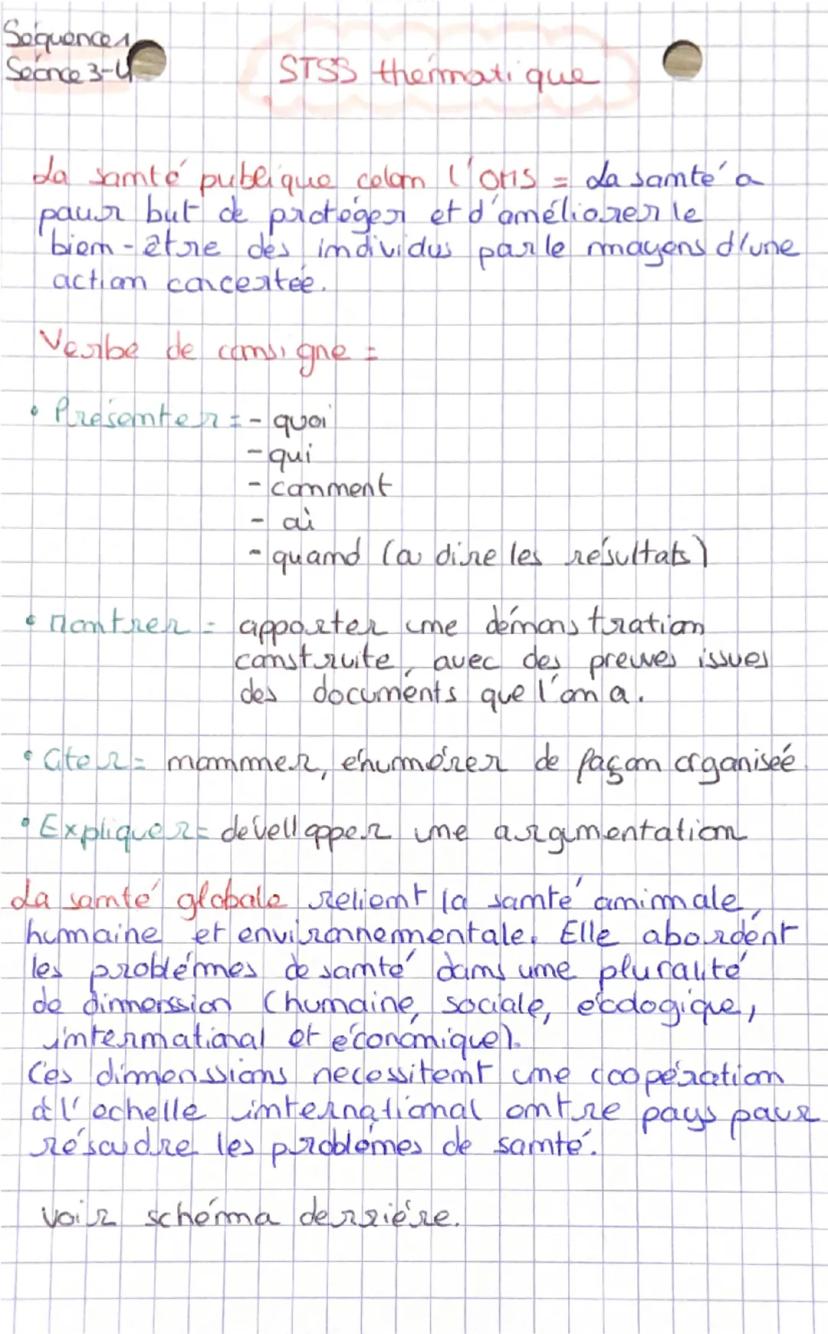 Séquence 1
Séance 3-4
STSS thématique
La santé publique celon l'OMS = La santé a
pour but de protéger et d'améliorer le
bien-être des individus par le moyens d'une
action concertée.
Verbe de consigne =
• Présenter = - quoi
- qui
- comment
- où
- quand (a dire les résultats)
• Montrer = apporter une démonstration
construite, avec des preuves issues
des documents que l'on a.
• Citer = nommer, énumérer de façon organiseé
• Expliquer = dévellopper une argumentation
La santé globale relient la santé animale,
humaine et environnementale. Elle abordent
les problémes de santé dans une pluralité
de dimenssion (humaine, sociale, écologique,
international et économique).
Ces dimenssions necessitent une coopération
à l'echelle international entre pays pour
résoudre les problémes de santé.
voir schéma derriére.